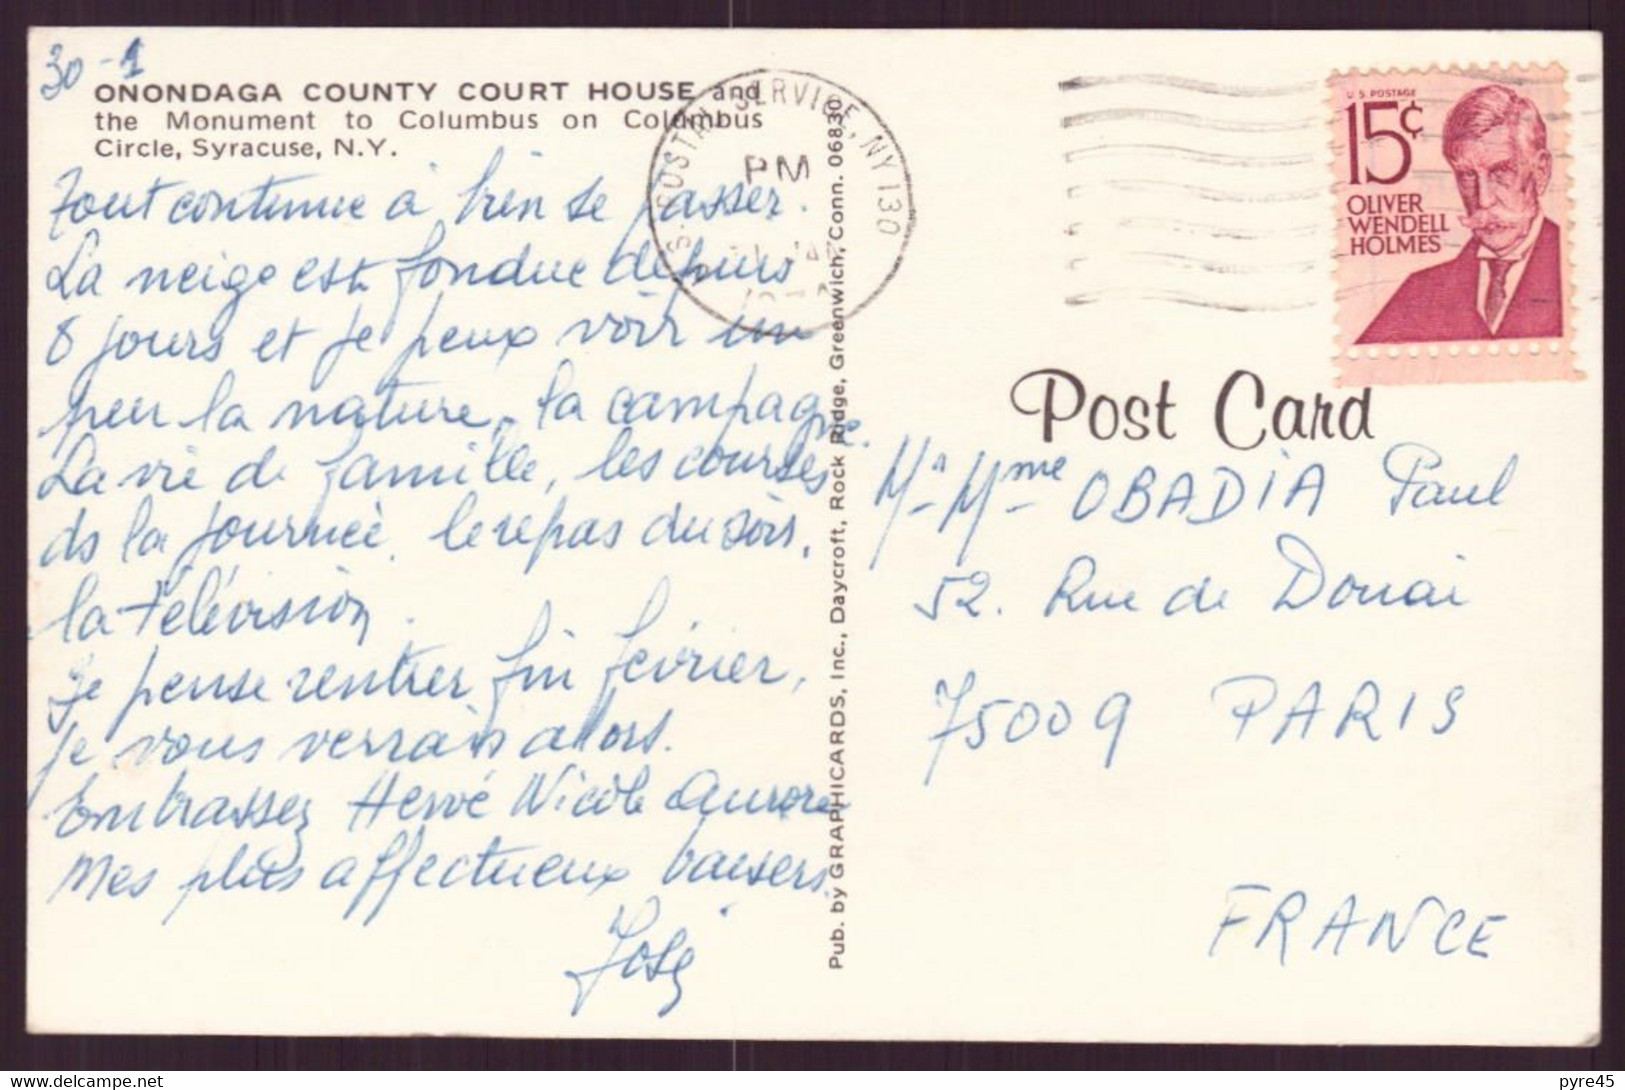 30-1
ONONDAGA COUNTY COURT HOUSE and
the Monument to Columbus on Columbus
Circle, Syracuse, N.Y.
Tout continue à bien se passer.
La neige est fondue depuis
8 jours et je peux voir un
peu la nature, la campagne.
La vie de famille, les courses
ds la journée, le repas du soir,
la télévision.
Je pense rentrer fin février,
je vous verrais alors.
Embrassez Hervé Nicole Aurore
Mes plus affectueux baisers.
José
Pub. by GRAPHICARDS, Inc., Daycroft, Rock Ridge, Greenwich, Conn. 06830
U.S. POSTAL SERVICE, NY 130
PM
U.S. POSTAGE
15¢
OLIVER
WENDELL
HOLMES
Post Card
Mr Mme OBADIA Paul
52. Rue de Douai
75009 PARIS
FRANCE
pyre45